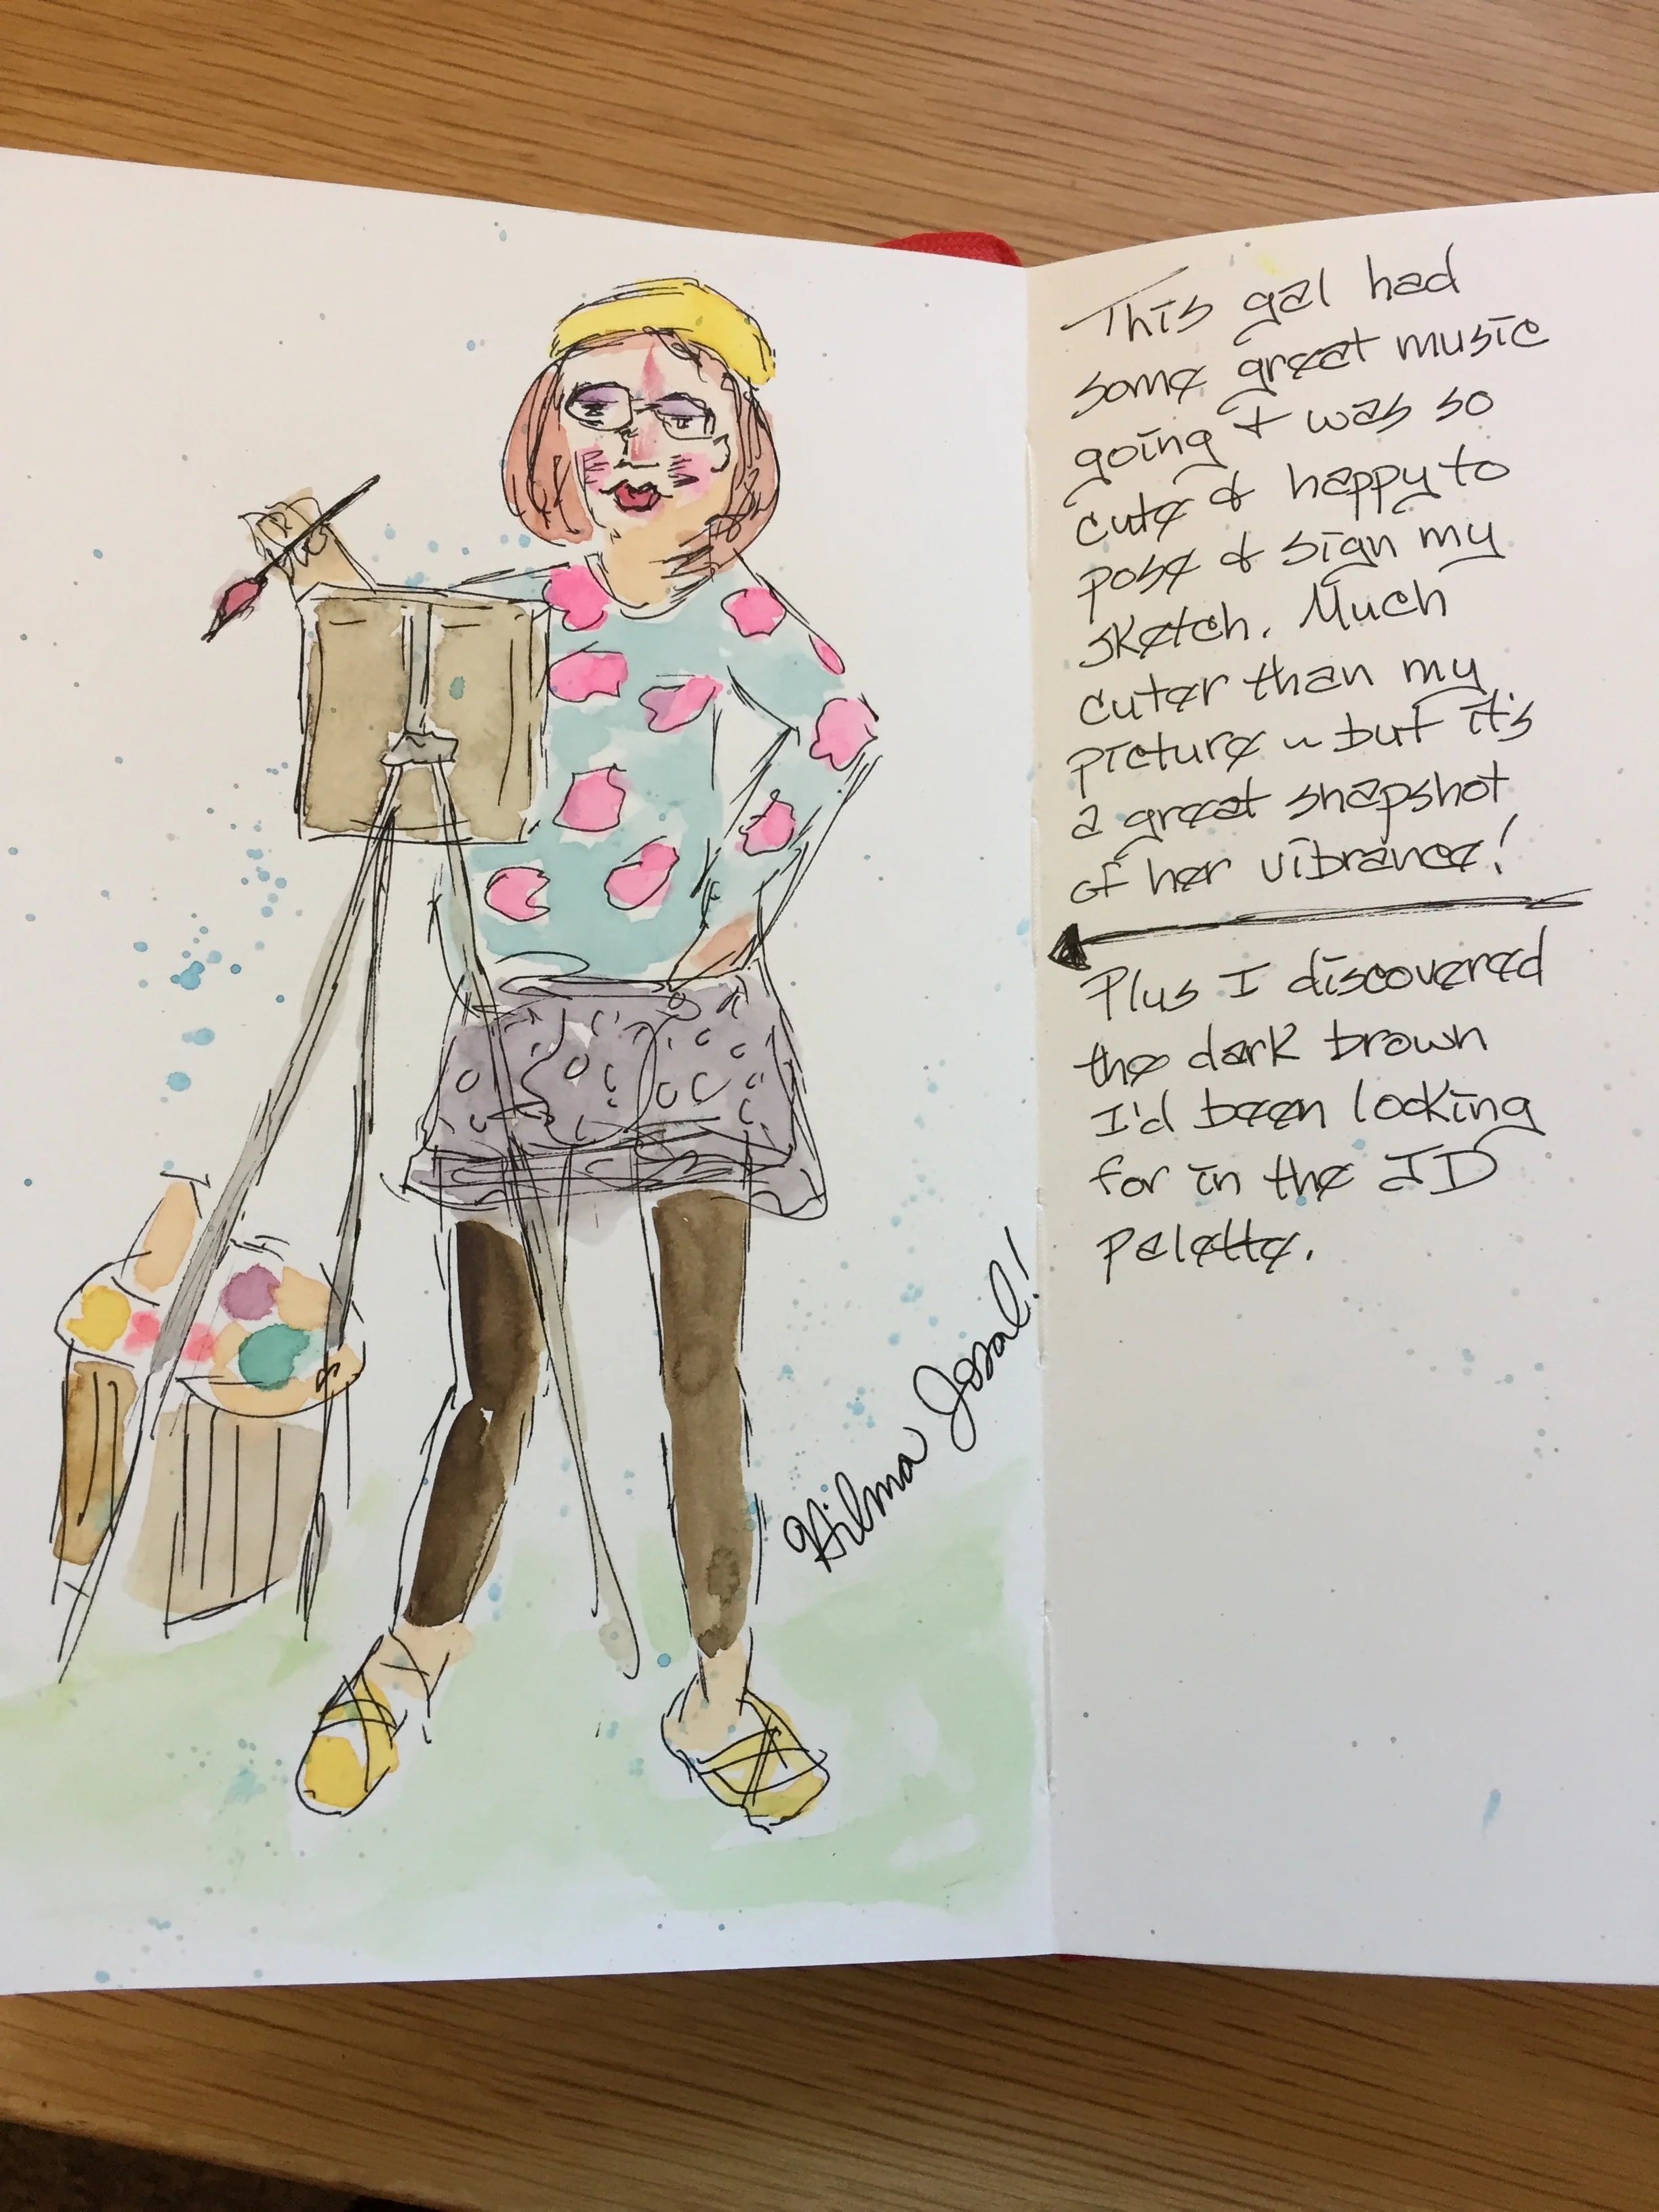 This gal had
some great music
going & was so
cute & happy to
pose & sign my
sketch. Much
cuter than my
picture ~ but it's
a great snapshot
of her vibrance!
Plus I discovered
the dark brown
I'd been looking
for in the JD
palette.
Hilma Josal!